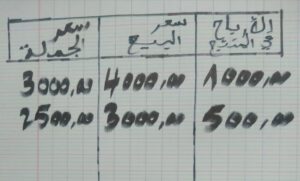 الأرباح في المنتج | سعر البيع | سعر الجملة
1000,00 | 4000,00 | 3000,00
500,00 | 3000,00 | 2500,00